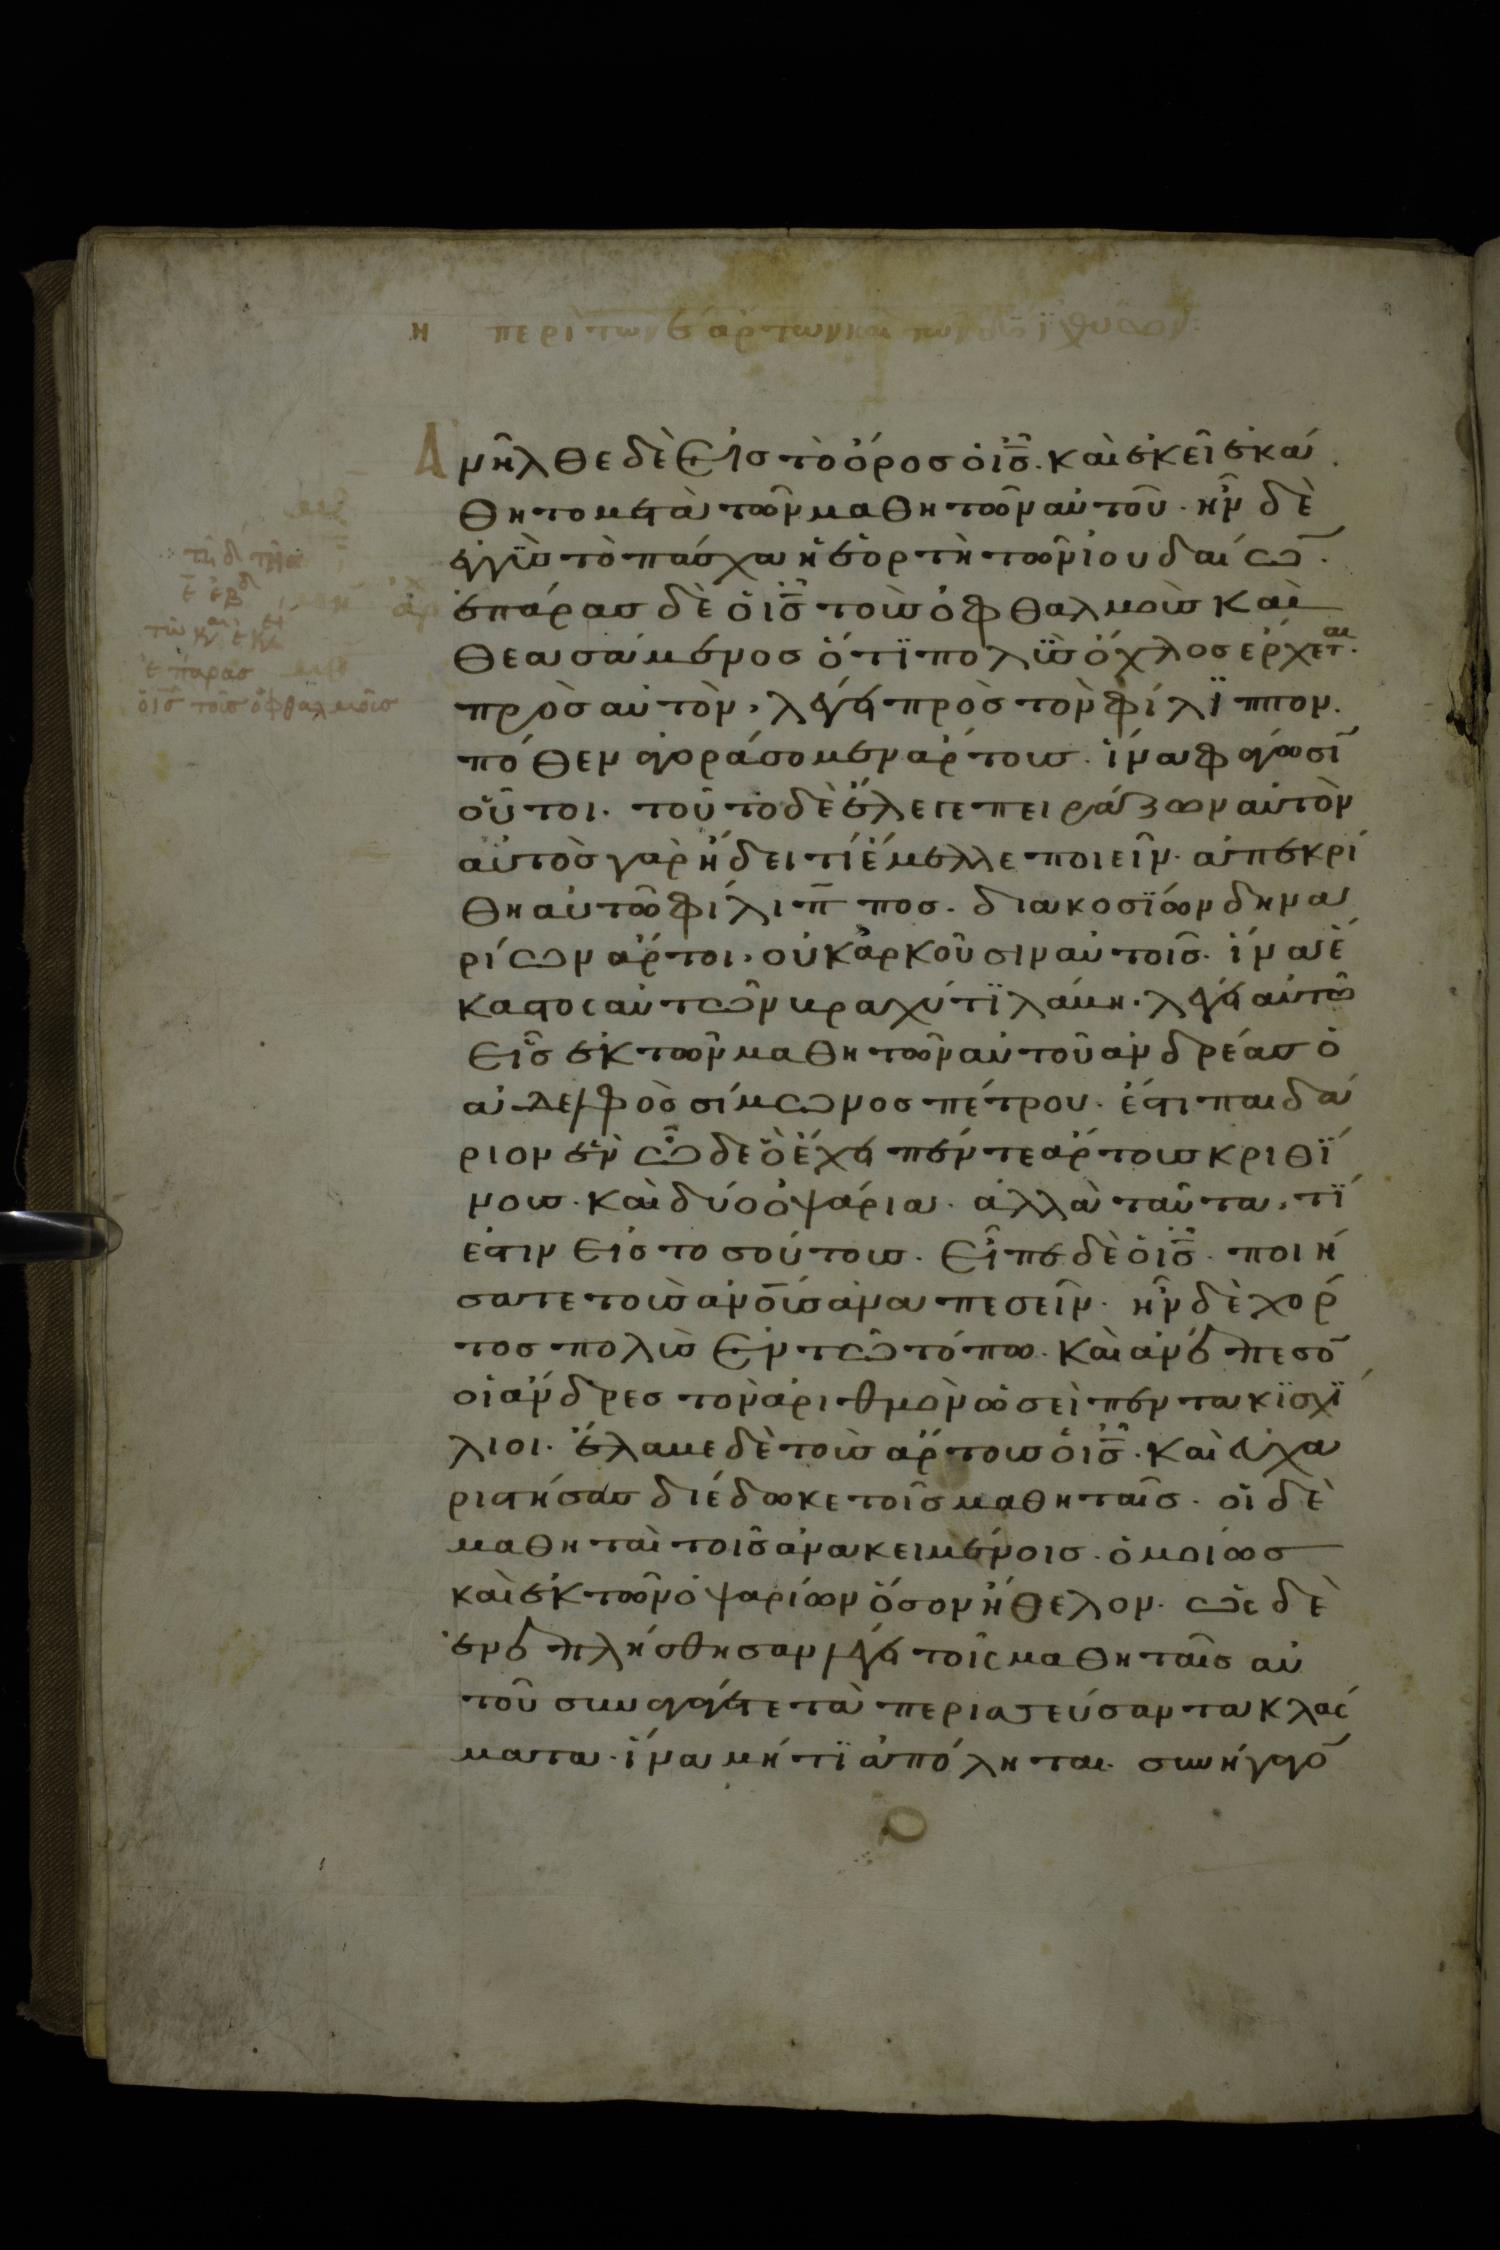 η περὶ τῶν ε ἄρτων καὶ τῶν δύο ἰχθύων:
Ἀνῆλθε δὲ εἰς τὸ ὄρος ὁ ις̅. καὶ ἐκεῖ ἐκά
θητο μετὰ τῶν μαθητῶν αὐτοῦ. ἦν δὲ
ἐγγὺς τὸ πάσχα ἡ ἑορτὴ τῶν ἰουδαίω̅.
ἐπάρας δὲ ὁ ις̅ τοὺς ὀφθαλμοὺς καὶ
θεασάμενος ὅτϊ πολϋς ὄχλος ἔρχεται
πρὸς αὐτὸν, λέγει πρὸς τὸν φίλϊππον.
πόθεν ἀγοράσομεν ἄρτους. ἵνα φάγωσῖ
οὗτοι. τοῦτο δὲ ἔλεγε πειράζων αὐτὸν
αὐτὸς γὰρ ᾔδει τί ἔμελλε ποιεῖν. ἀπεκρί
θη αὐτῶ φίλιππος. διακοσϊων δηνα
ρίων ἄρτοι, οὐκ ἀρκοῦσιν αὐτοῖς. ἵνα ἕ
καστος αὐτῶν βραχύ τϊ λάβη. λέγει αὐτῶ
εἷς ἐκ τῶν μαθητῶν αὐτοῦ ἀνδρέας ὁ
ἀδελφὸς σίμωνος πέτρου. ἔστι παιδά
ριον ἓν ὧδε ὃ ἔχει πέντε ἄρτους κριθϊ
νους. καὶ δύο ὀψάρια. ἀλλὰ ταῦτα, τϊ
ἐστιν εἰς τοσούτους. εἶπε δὲ ὁ ις̅. ποιή
σατε τοὺς ἀνο̅υς ἀναπεσεῖν. ἦν δὲ χόρ
τος πολὺς ἐν τῶ τόπω. καὶ ἀνέπεσο̅
οἱ ἄνδρες τὸν ἀριθμὸν ὡσεὶ πεντακϊσχϊ
λιοι. ἔλαβε δὲ τοὺς ἄρτους ὁ ις̅. καὶ εὐχα
ριστήσας διέδωκε τοῖς μαθηταῖς. οἱ δὲ
μαθηταὶ τοῖς ἀνακειμένοις. ὁμοίως
καὶ ἐκ τῶν ὀψαρίων ὅσον ἤθελον. ὡς δὲ
ἐνεπλήσθησαν λέγει τοῖς μαθηταῖς αὐ
τοῦ συναγάγετε τὰ περισσεύσαντα κλάσ
ματα. ἵνα μή τϊ ἀπόληται. συνήγαγο̅
ἐπάρας
ὁ ις̅ τοῖς ὀφθαλμοῖς